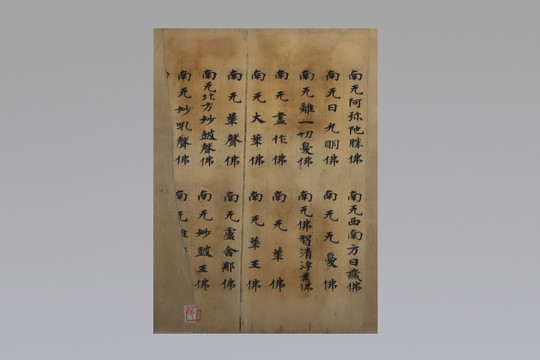 南无阿弥陁勝佛 南无西南方日藏佛
南无日光明佛 南无无憂佛
南无離一切憂佛 南无佛智清淨業佛
南无盡作佛 南无華佛
南无大華佛 南无華王佛
南无華聲佛 南无盧舍那佛
南无北方妙皷聲佛 南无妙皷王佛
南无妙吼聲佛 南无